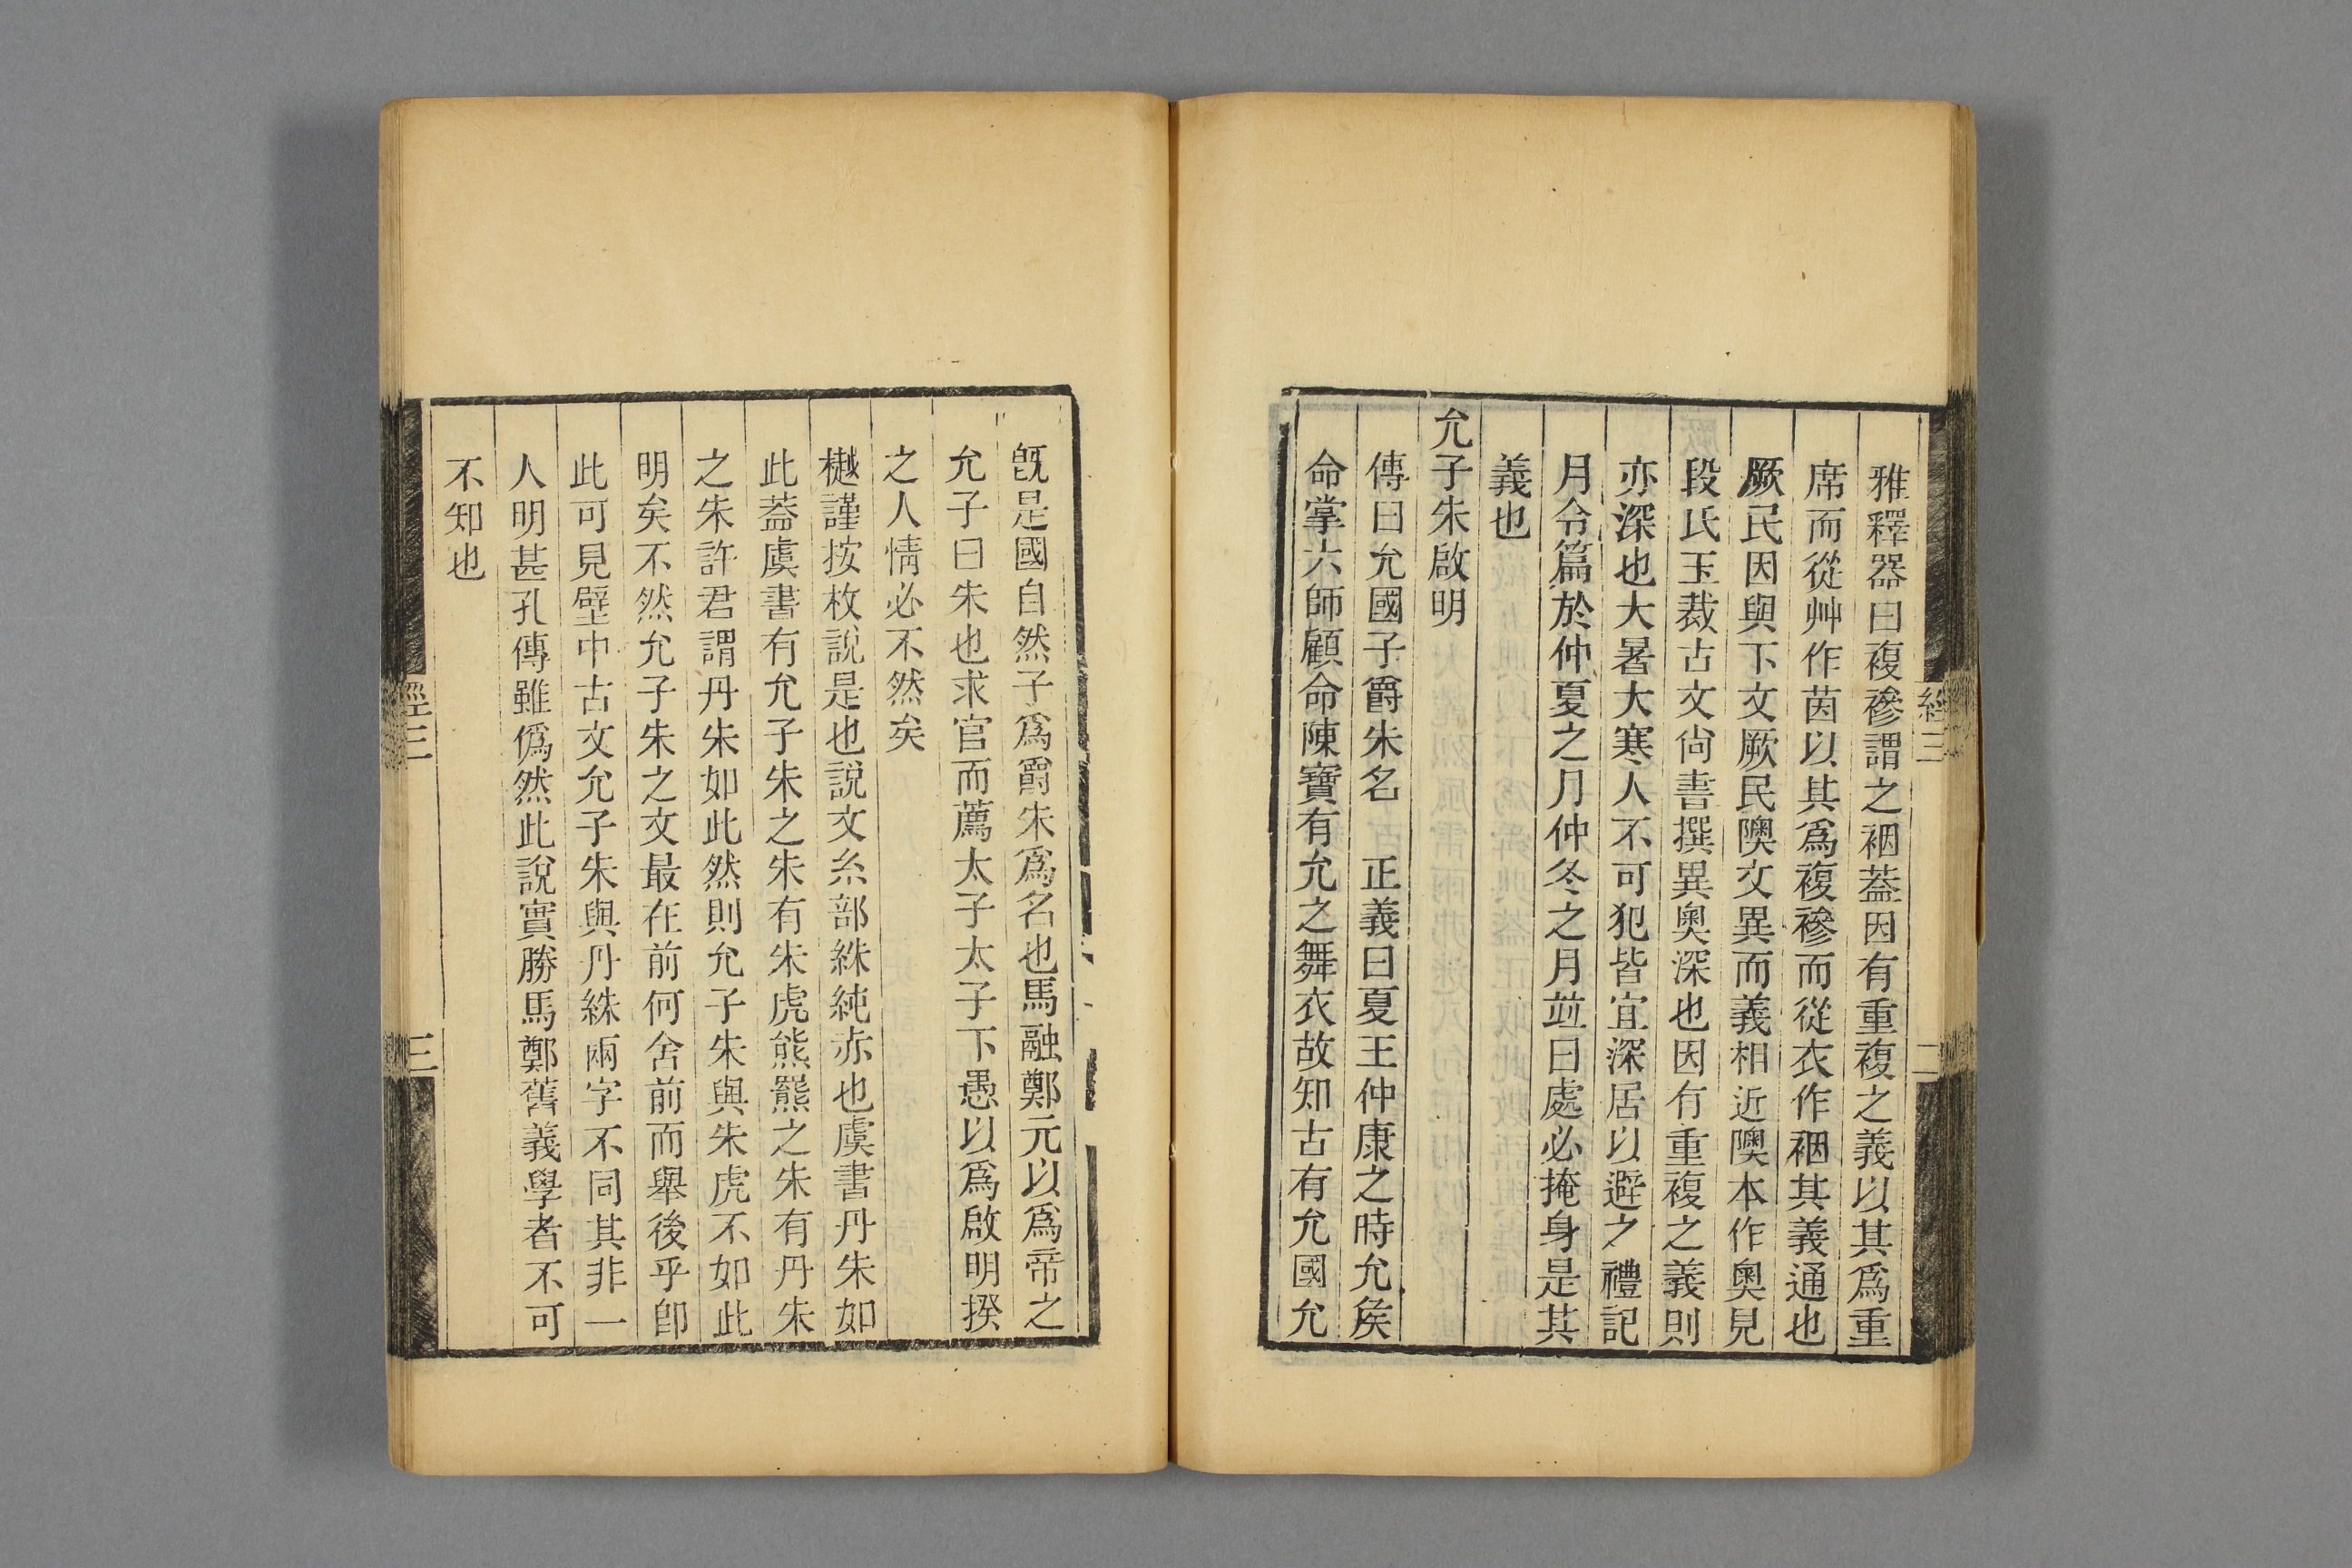 雅釋器曰複襂謂之裀葢因有重複之義以其爲重
席而從艸作茵以其爲複襂而從衣作裀其義通也
厥民因與下文厥民隩文異而義相近隩本作奧見
段氏玉裁古文尙書撰異奧深也因有重複之義則
亦深也大暑大寒人不可犯皆宜深居以避之禮記
月令篇於仲夏之月仲冬之月竝曰處必掩身是其
義也
允子朱啟明
傳曰允國子爵朱名　正義曰夏王仲康之時允矦
命掌六師顧命陳寶有允之舞衣故知古有允國允
經三
二
旣是國自然子爲爵朱爲名也馬融鄭元以爲帝之
允子曰朱也求官而薦太子太子下愚以爲啟明揆
之人情必不然矣
樾謹按枚說是也說文糸部絑純赤也虞書丹朱如
此葢虞書有允子朱之朱有朱虎熊羆之朱有丹朱
之朱許君謂丹朱如此然則允子朱與朱虎不如此
明矣不然允子朱之文最在前何舍前而舉後乎卽
此可見壁中古文允子朱與丹絑兩字不同其非一
人明甚孔傳雖僞然此說實勝馬鄭舊義學者不可
不知也
經三
三